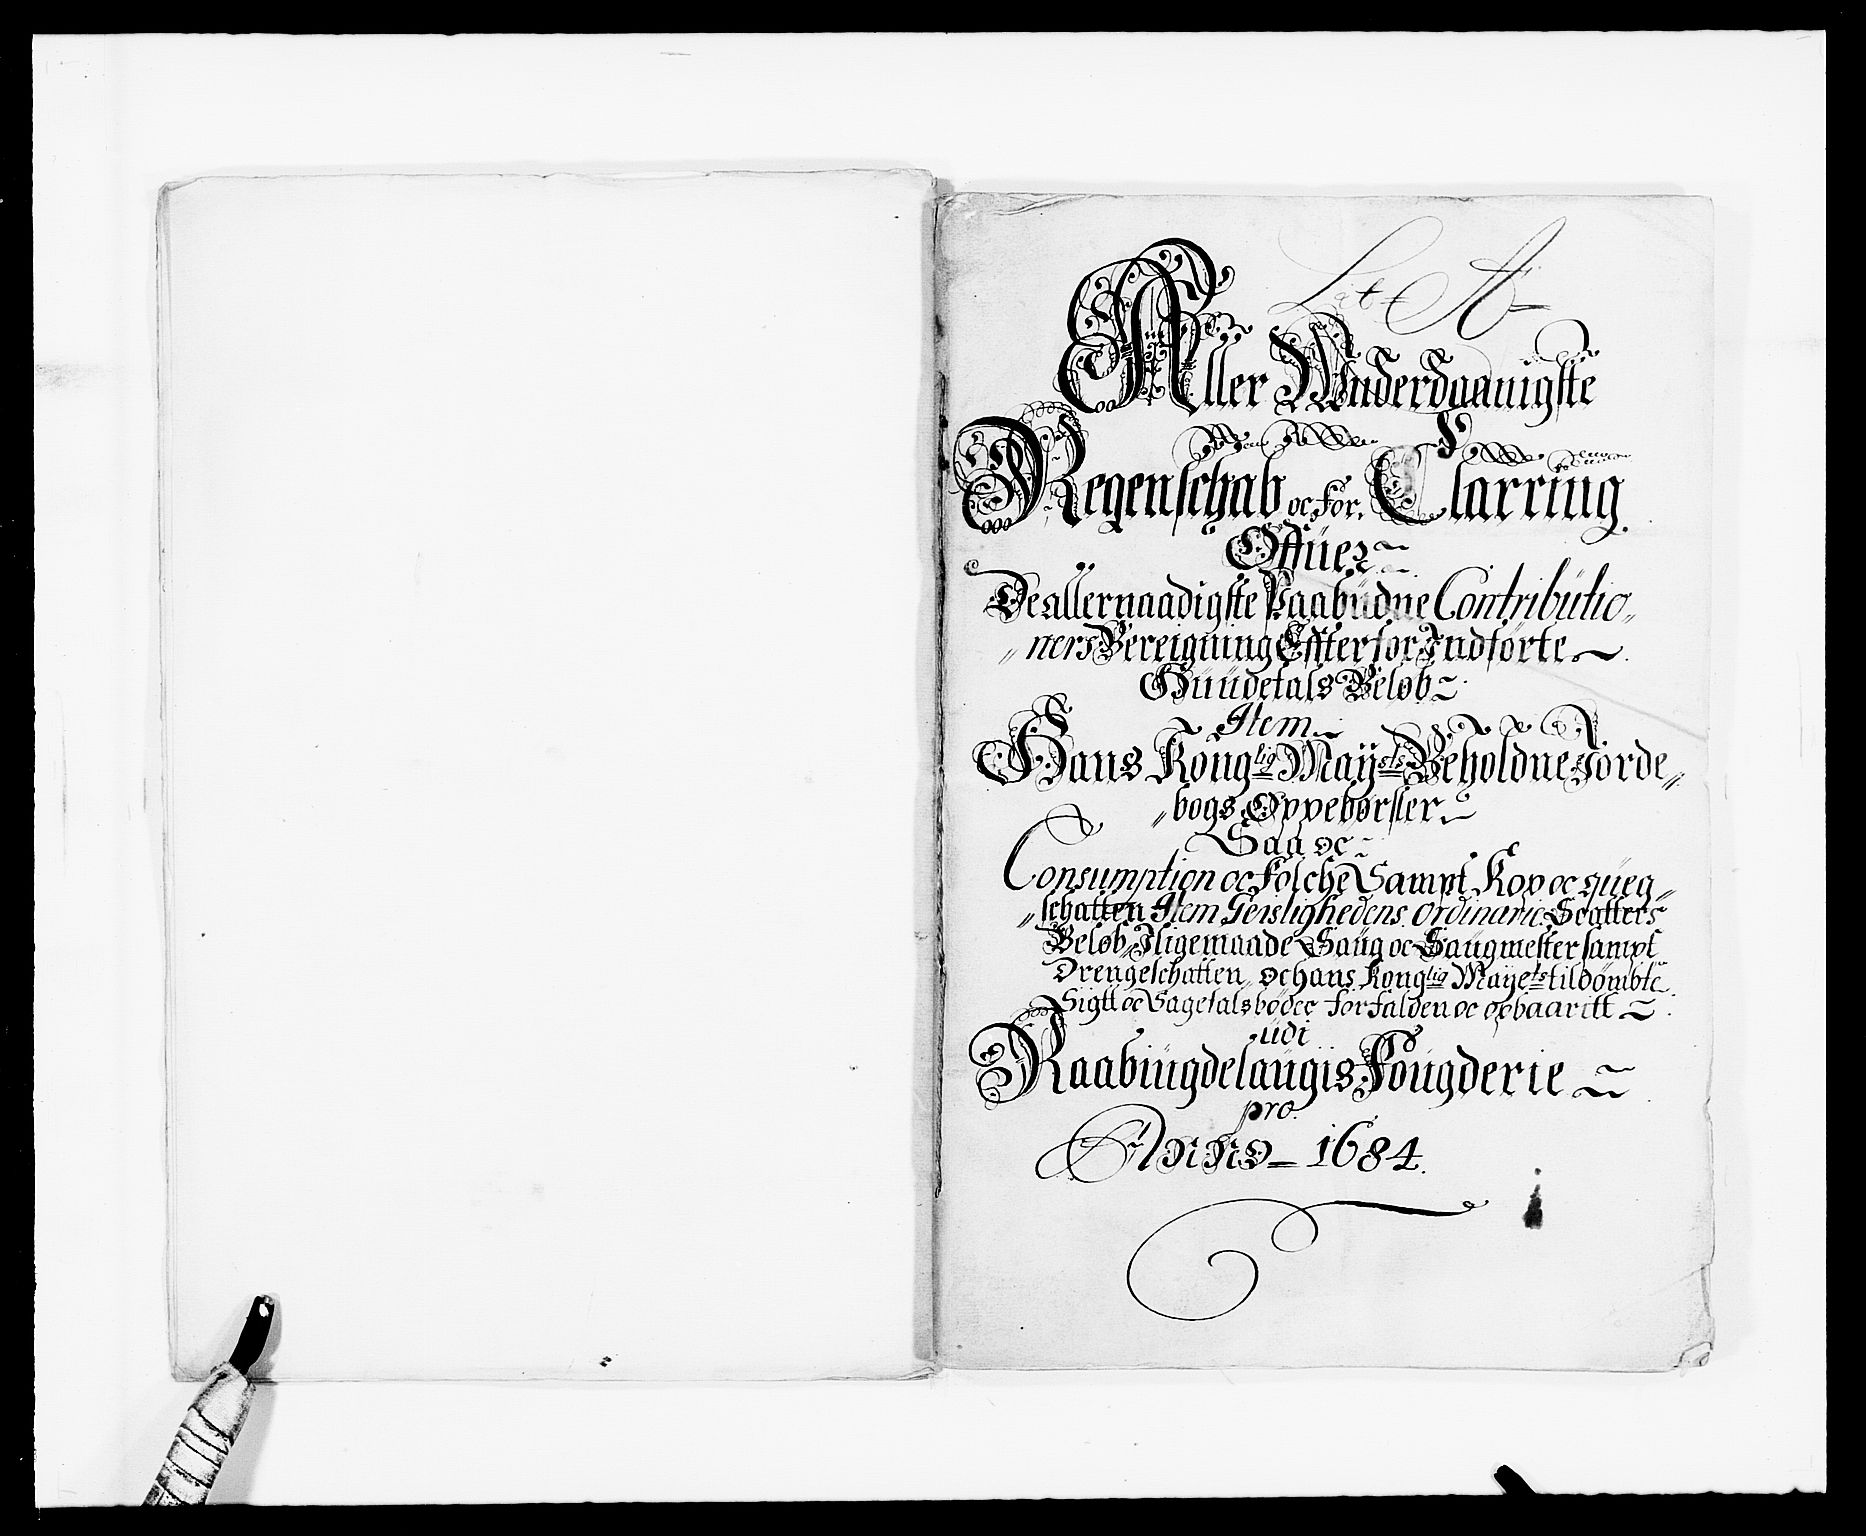 Lit A
Aller Underdaanigste
Regenschab oc for Clarring
Offüer
De allernaadigste Paabüdne Contribütio„
„ners Bereigning Effter for Indförte
Hüüdetals Beløb
Item
Hans Konglig Mayesß Beholdne Jorde„
„bogs Oppebørsler
Saa oc
Consumption oc Folche Sampt Kop oc qüeg„
„schatten Item Geislighedens Ordinarie
Beløb, Iligemaade Saüg oc Saügmester sampt
Drengeschatten, oc hans Konglig Mayets tildømbte
Sigtt oc Sagefalsbøder forfalden oc opbaaritt
üdi
Raabiügdelaügis Fougderie
pro.
Anno 1684.